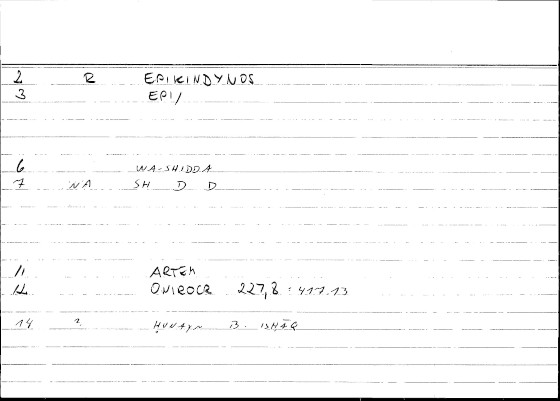 2 R EPIKINDYNOS
3 EPI/
6 WA-SHIDDA
7 NA SH D D
11 ARTEM
12 ONIROCR 227,8 : 417.13
14 2 ḤUNAYN B. ISḤĀQ